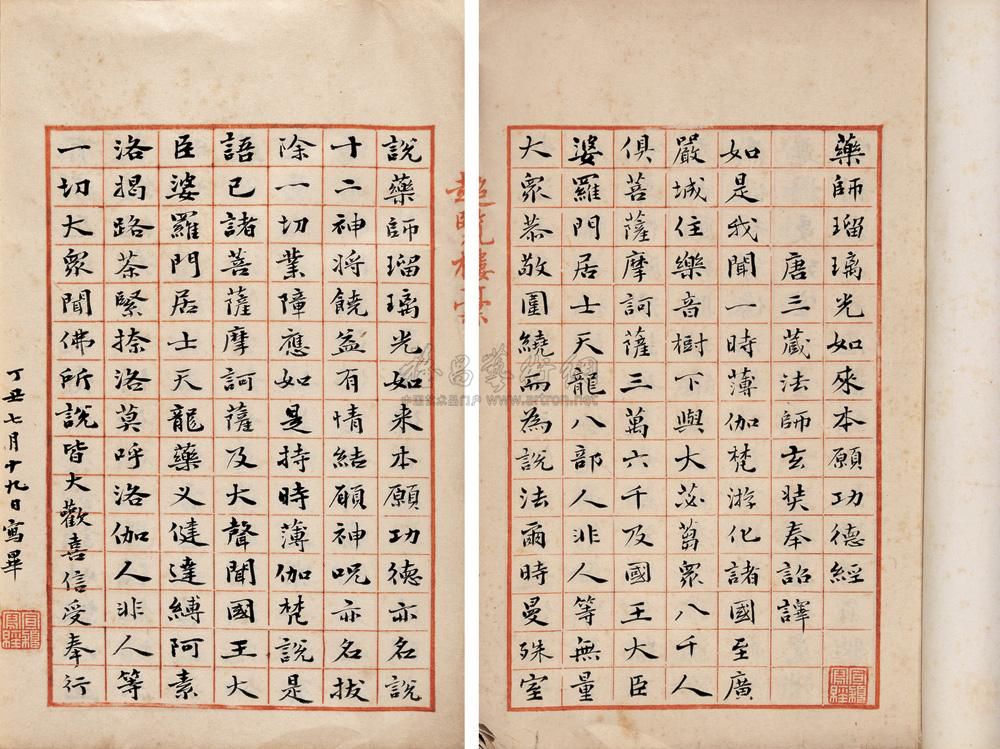 藥師瑠璃光如來本願功德經
唐三藏法師玄奘奉詔譯
如是我聞一時薄伽梵游化諸國至廣
嚴城住樂音樹下與大苾蒭眾八千人
俱菩薩摩訶薩三萬六千及國王大臣
婆羅門居士天龍八部人非人等無量
大眾恭敬圍繞而為說法爾時曼殊室
說藥師瑠璃光如来本願功德亦名說
十二神将饒益有情結願神呪亦名拔
除一切業障應如是持時薄伽梵說是
語已諸菩薩摩訶薩及大聲聞國王大
臣婆羅門居士天龍藥义健達縛阿素
洛揭路荼緊捺洛莫呼洛伽人非人等
一切大眾聞佛所說皆大歡喜信受奉行
丁丑七月十九日寫畢
超覽樓
www.artron.net